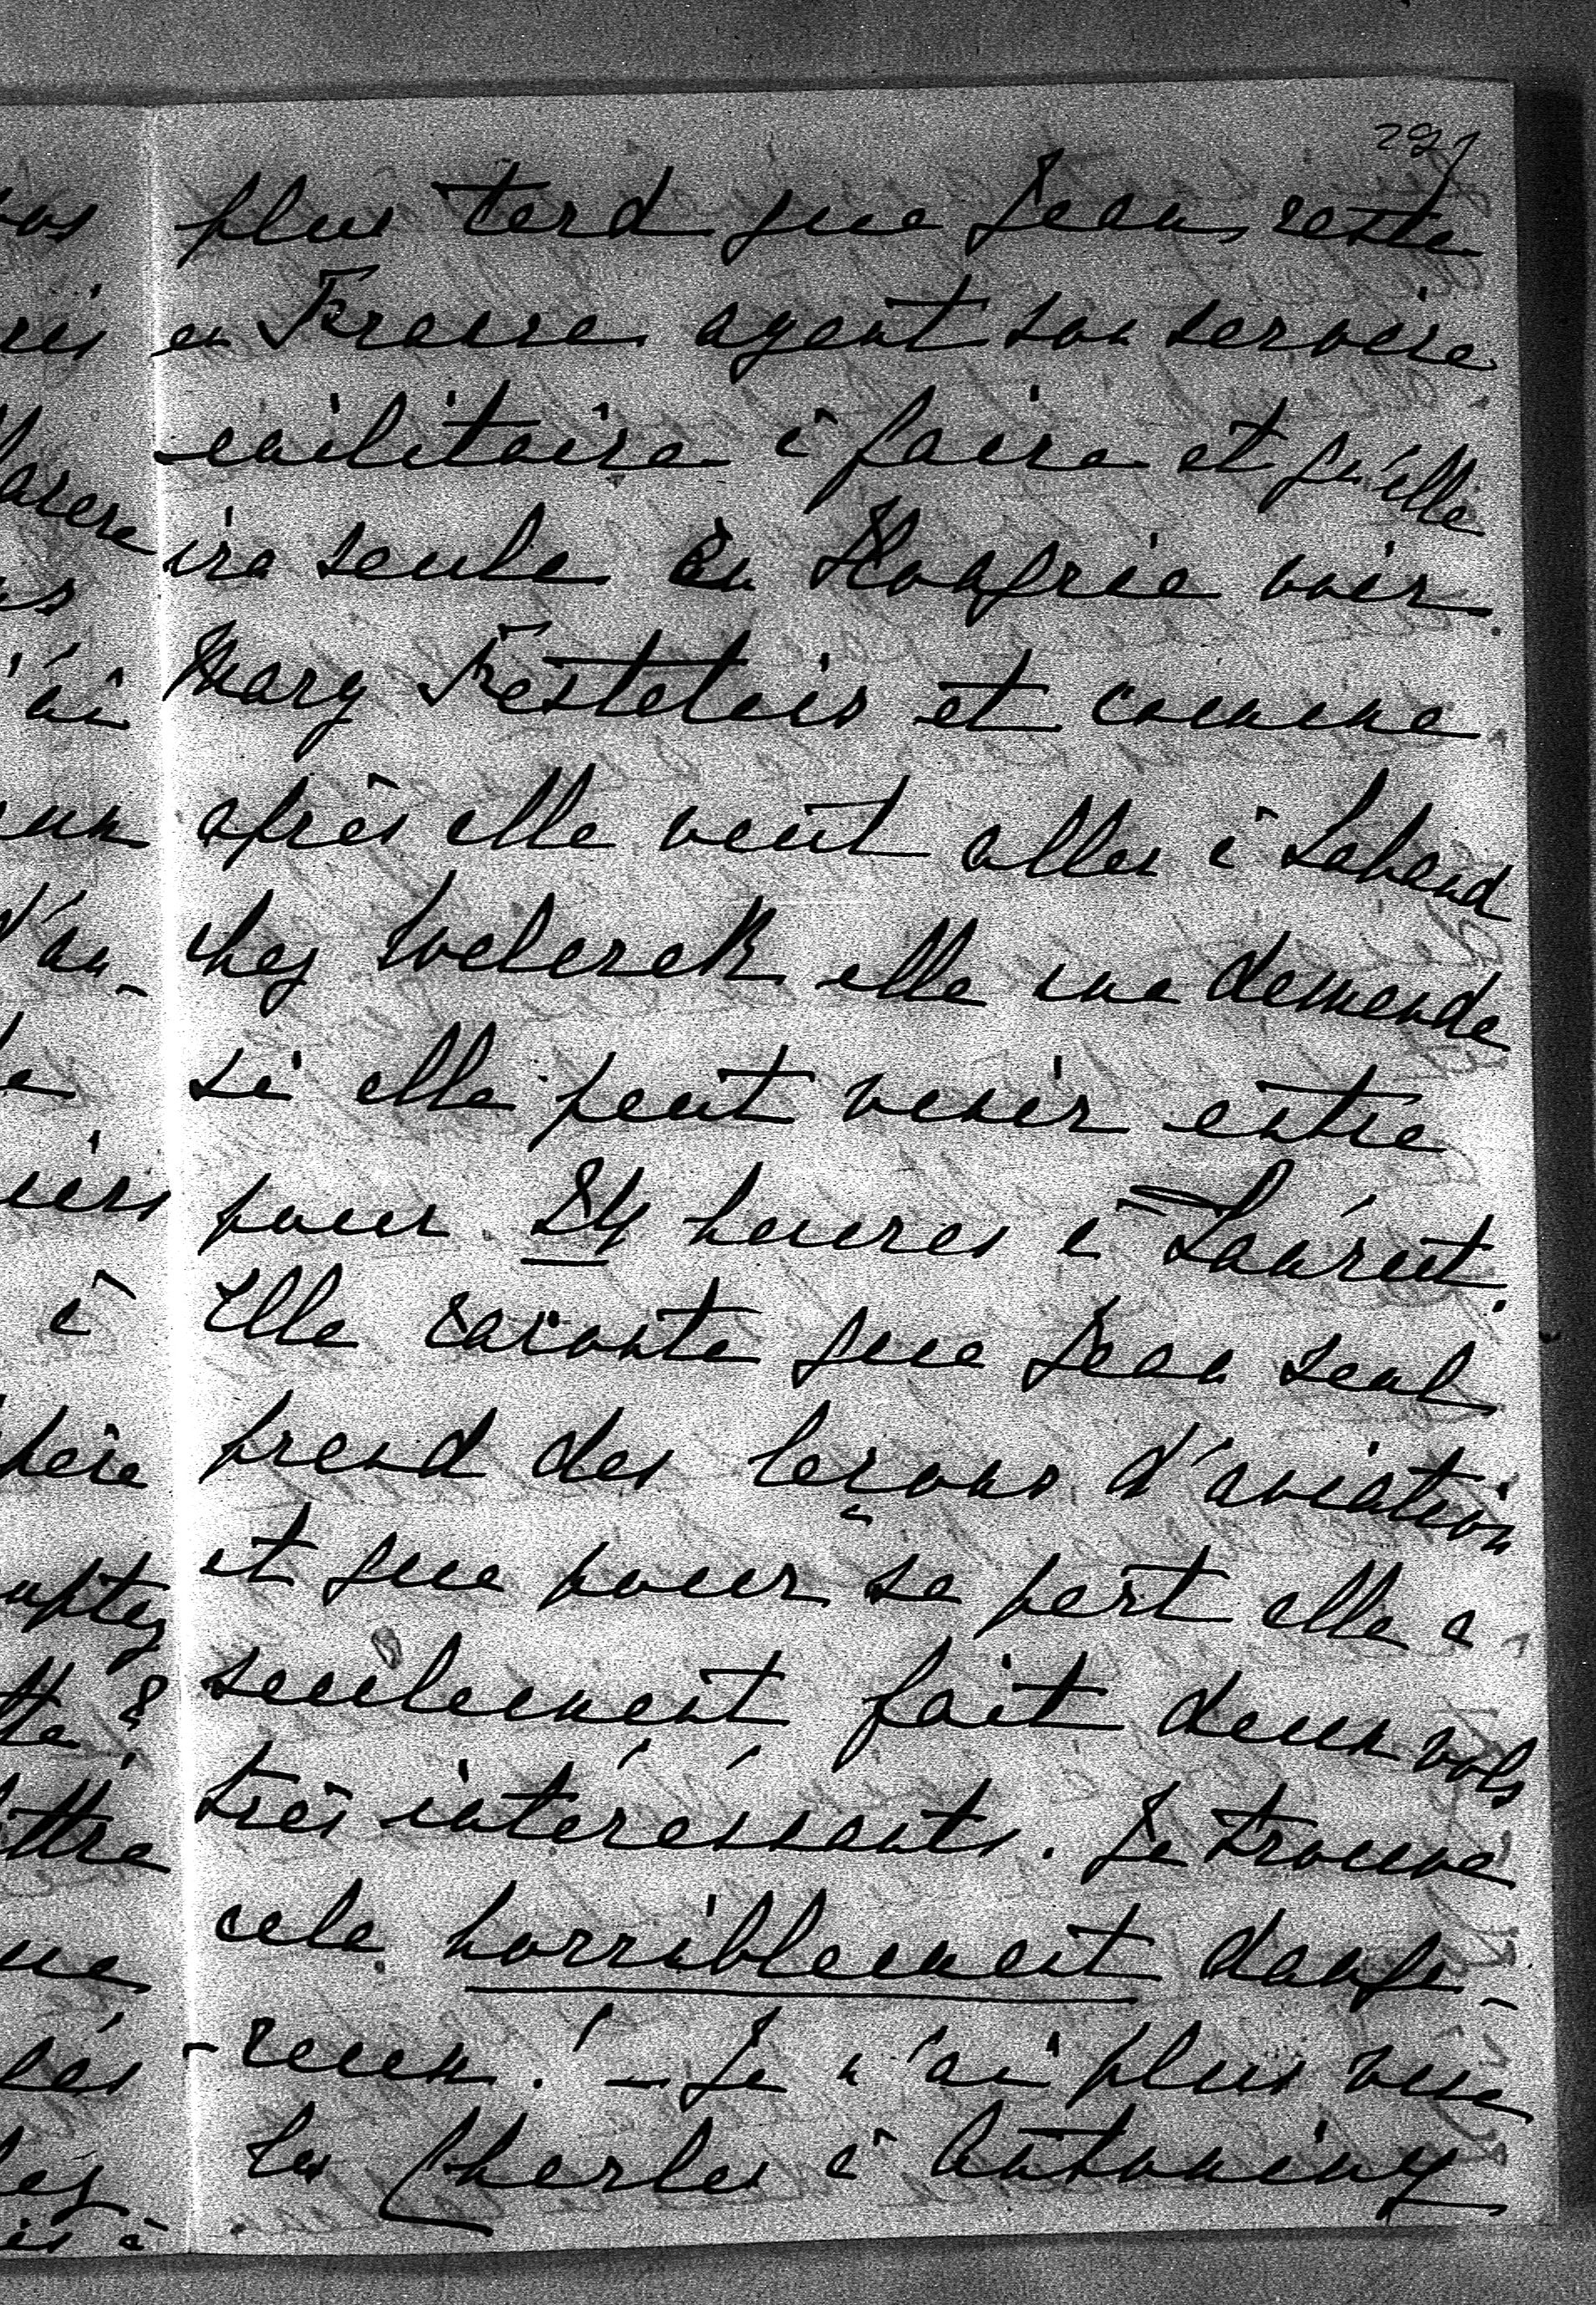 291
plus tard que Jean reste
en France ayant son service
militaire à faire et qu'elle
ira seule en Hongrie voir
Mary Festetics et comme
après elle veut aller à Labend
chez Welczek elle me demande
si elle peut venir entre
pour 24 heures à Láncút.
Elle raconte que Jean seul
prend des leçons d'aviation
et que pour sa part elle a
seulement fait deux vols
très intéréssants. Je trouve
cela horriblement dange-
-reux! – Je n'ai plus vue
les Charles à Antoniny